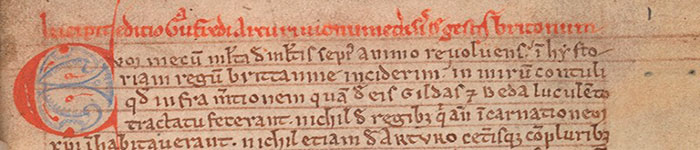 Incipit editio Gaufredi Arturi monumetensis de gestis britonum
Cum mecū mlta ⁊ d mltis sepi' animo revolvens. ī hysto
riam regū brittannie inciderim. in mirū contuli
qd infra m̄tionem quā d eis Gildas ⁊ Beda luculēto
tractatu fecerant. nichil d regibȝ q' an̄ īcarnationem
xp̄i īhabitaverant. nichil etiam d Arturo cet'isqȝ cōpluribȝ